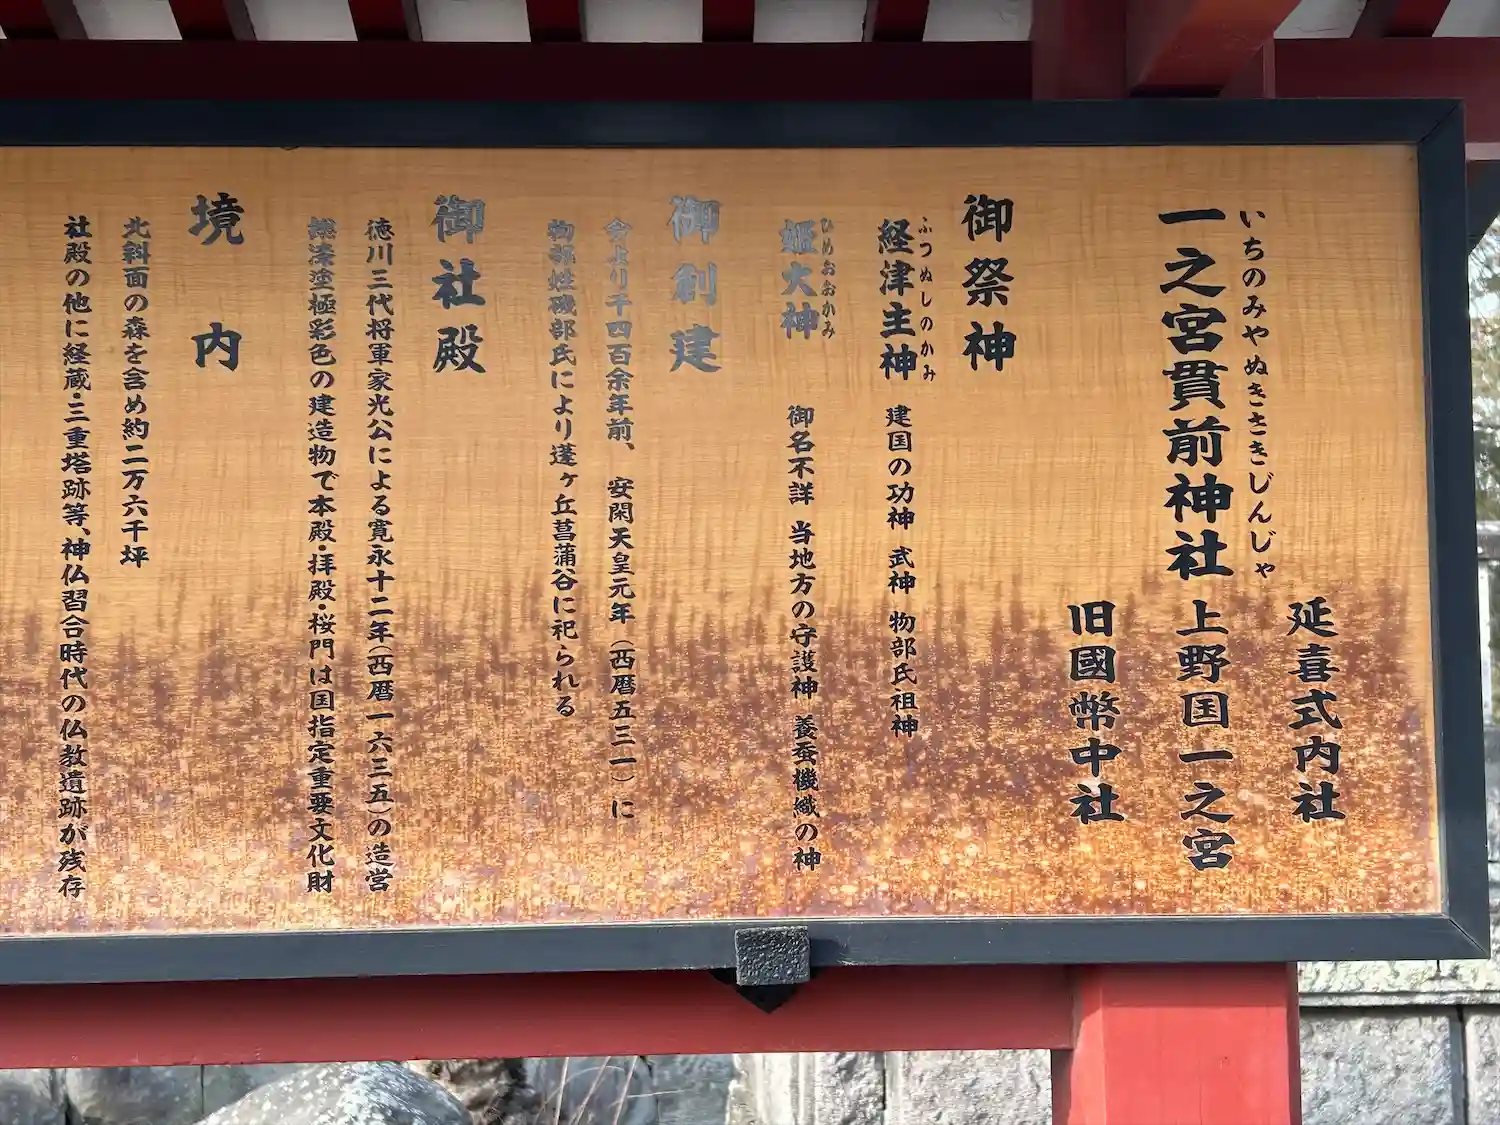 延喜式内社
いちのみやぬきさきじんじゃ
一之宮貫前神社 上野国一之宮
旧國幣中社
御祭神
ふつぬしのかみ
経津主神 建国の功神 武神 物部氏祖神
ひめおおかみ
姫大神 御名不詳 当地方の守護神 養蚕機織の神
御創建
今より千四百余年前、安閑天皇元年(西暦五三一)に
物部姓磯部氏により蓬ヶ丘菖蒲谷に祀られる
御社殿
徳川三代将軍家光公による寛永十二年(西暦一六三五)の造営
総漆塗極彩色の建造物で本殿・拝殿・桜門は国指定重要文化財
境内
北斜面の森を含め約二万六千坪
社殿の他に経蔵・三重塔跡等、神仏習合時代の仏教遺跡が残存